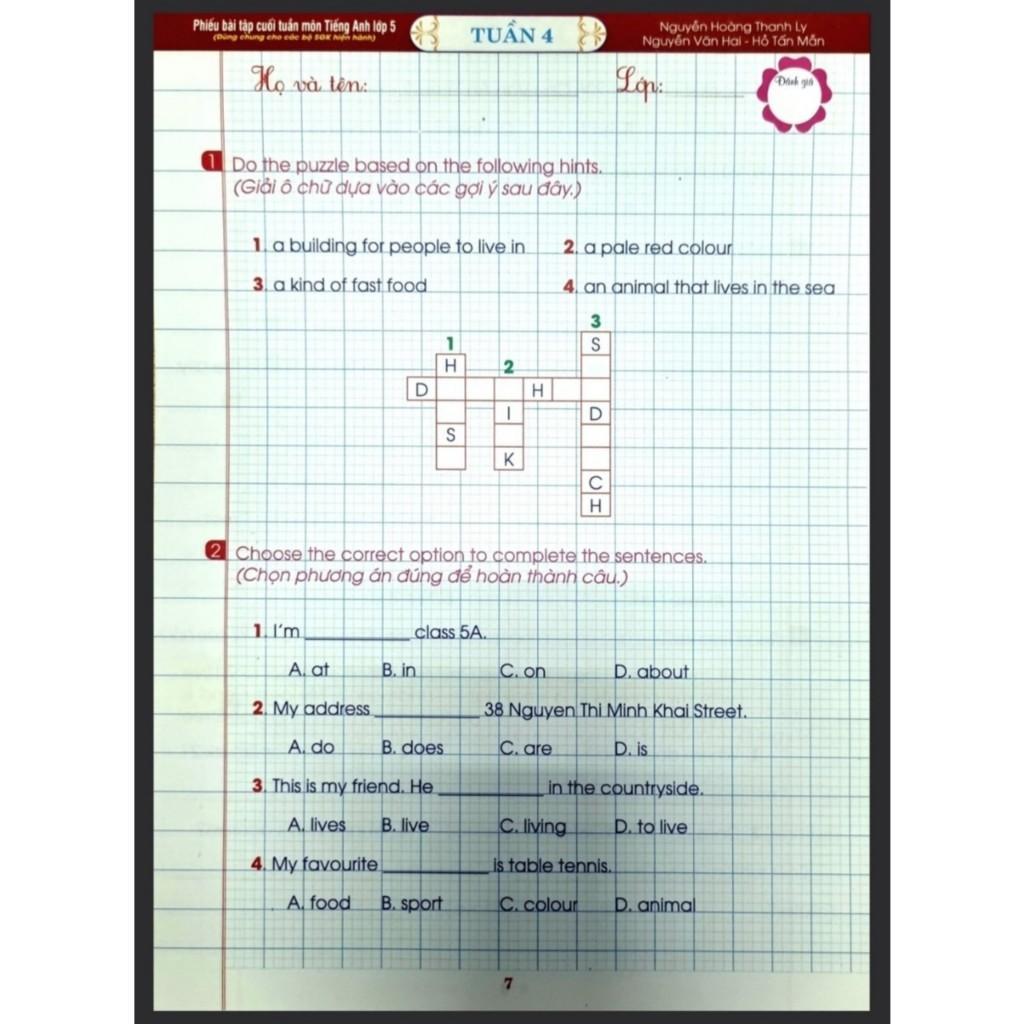 Phiếu bài tập cuối tuần môn Tiếng Anh lớp 5
(Dùng chung cho các bộ SGK hiện hành)
TUẦN 4
Nguyễn Hoàng Thanh Ly
Nguyễn Văn Hai - Hồ Tấn Mẫn
Họ và tên:
Lớp:
Đánh giá
1 Do the puzzle based on the following hints.
(Giải ô chữ dựa vào các gợi ý sau đây.)
1. a building for people to live in
2. a pale red colour
3. a kind of fast food
4. an animal that lives in the sea
3
1 S
H 2
D H
I D
S
K
C
H
2 Choose the correct option to complete the sentences.
(Chọn phương án đúng để hoàn thành câu.)
1. I'm __________ class 5A.
A. at B. in C. on D. about
2. My address __________ 38 Nguyen Thi Minh Khai Street.
A. do B. does C. are D. is
3. This is my friend. He __________ in the countryside.
A. lives B. live C. living D. to live
4. My favourite __________ is table tennis.
A. food B. sport C. colour D. animal
7